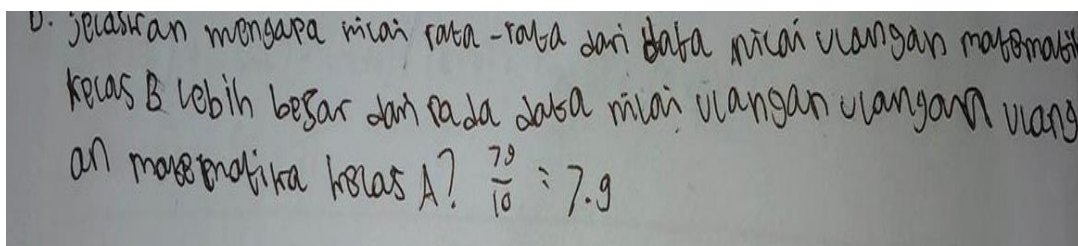 b. jelaskan mengapa nilai rata-rata dari data nilai ulangan matematik
kelas B lebih besar dari pada data nilai ulangan ulangan ulang
an matematika kelas A? 79/10 = 7.9